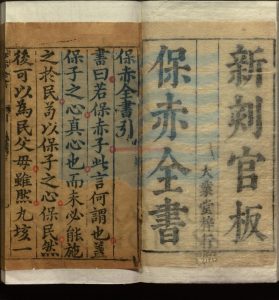 新刻官板
大業堂
保赤全書
保赤全書引
書曰若保赤子此言何謂也蓋
保子之心真心也而未必能施
之於民苟以保子之心保民然
後可以為民父毋雖然九垓一